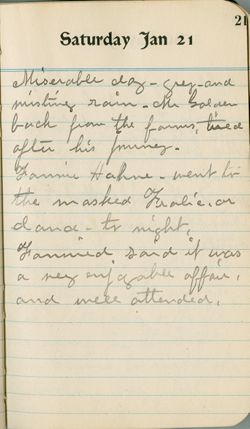 21
Saturday Jan 21
Miserable day - grey - and
misting rain - Mr Golden
back from the farms, tired
after his journey.
Fannie Hahne - went to
the masked Frolic or
dance - to night,
Fannie said it was
a very enjoyable affair,
and well attended.